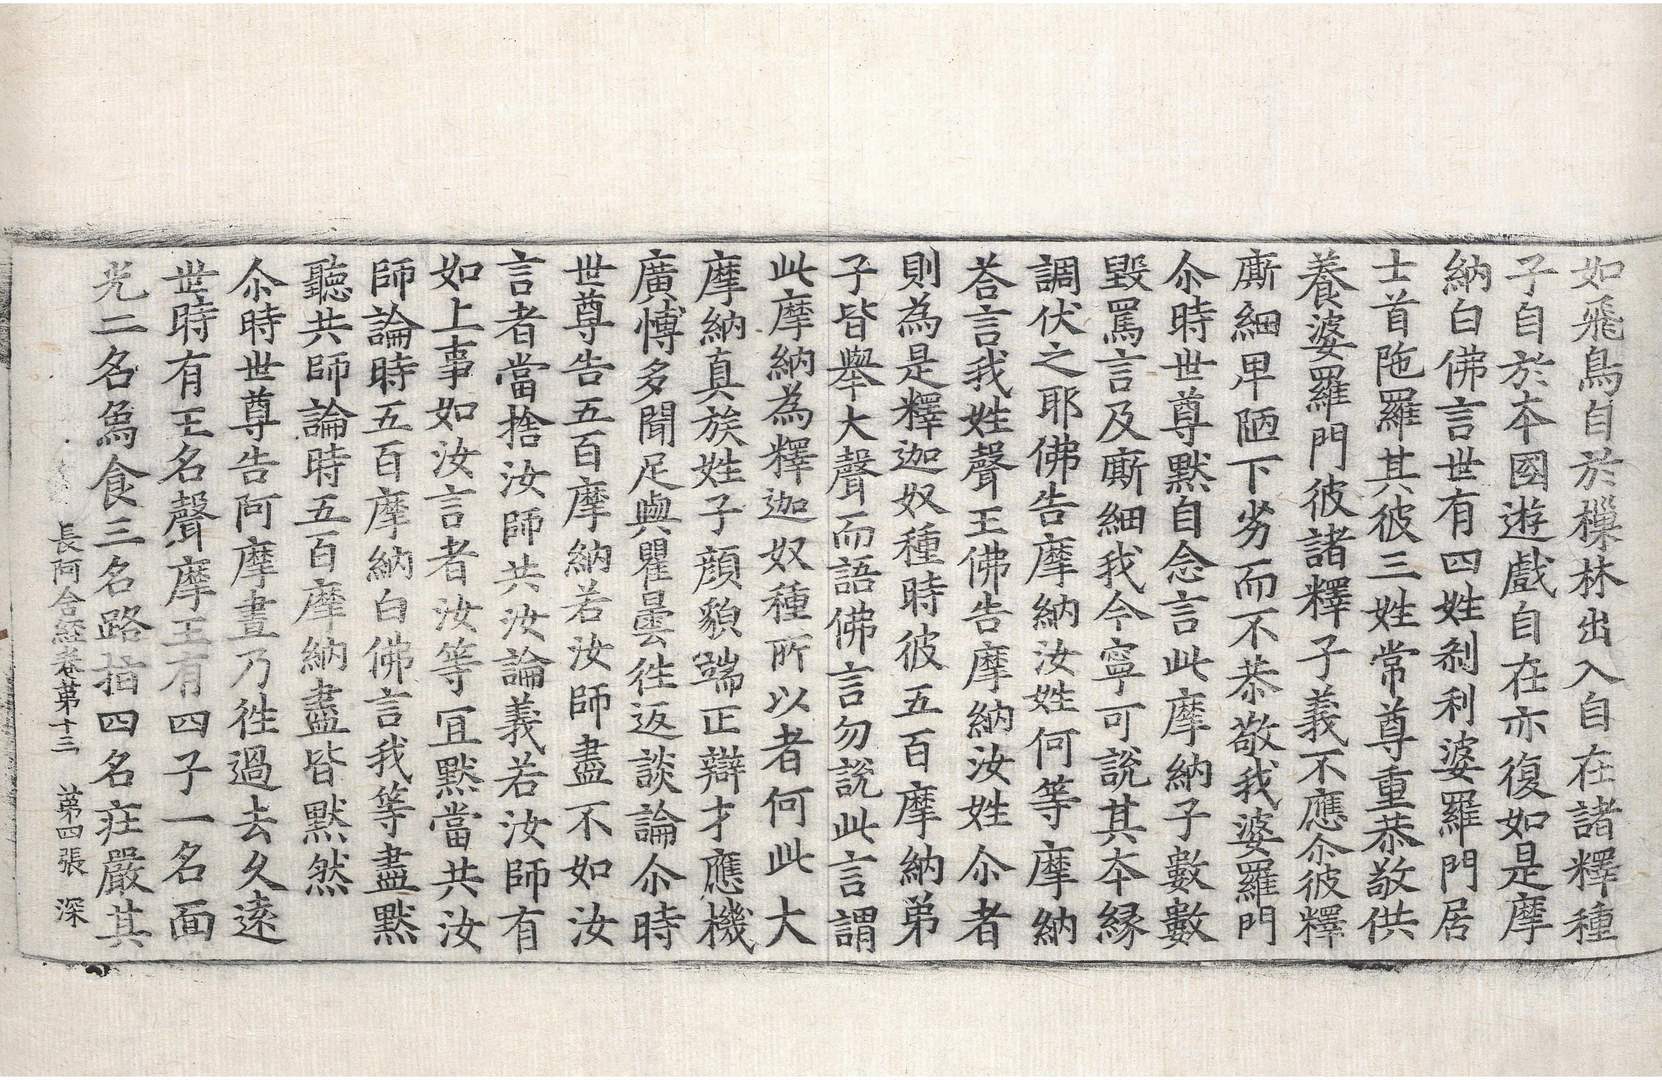 如飛鳥自於樔林出入自在諸釋種
子自於本國遊戲自在亦復如是摩
納白佛言世有四姓刹利婆羅門居
士首陁羅其彼三姓常尊重恭敬供
養婆羅門彼諸釋子義不應尒彼釋
廝細卑陋下劣而不恭敬我婆羅門
尒時世尊默自念言此摩納子數數
毀罵言及廝細我今寧可說其本緣
調伏之耶佛告摩納汝姓何等摩納
荅言我姓聲王佛告摩納汝姓尒者
則為是釋迦奴種時彼五百摩納弟
子皆舉大聲而語佛言勿說此言謂
此摩納為釋迦奴種所以者何此大
摩納真族姓子顏貌端正辯才應機
廣愽多聞足與瞿曇徃返談論尒時
世尊告五百摩納若汝師盡不如汝
言者當捨汝師共汝論義若汝師有
如上事如汝言者汝等冝默當共汝
師論時五百摩納白佛言我等盡默
聽共師論時五百摩納盡皆默然
尒時世尊告阿摩晝乃徃過去久遠
世時有王名聲摩王有四子一名面
光二名𤉡食三名路指四名莊嚴其
長阿含經卷第十三　第四張　深